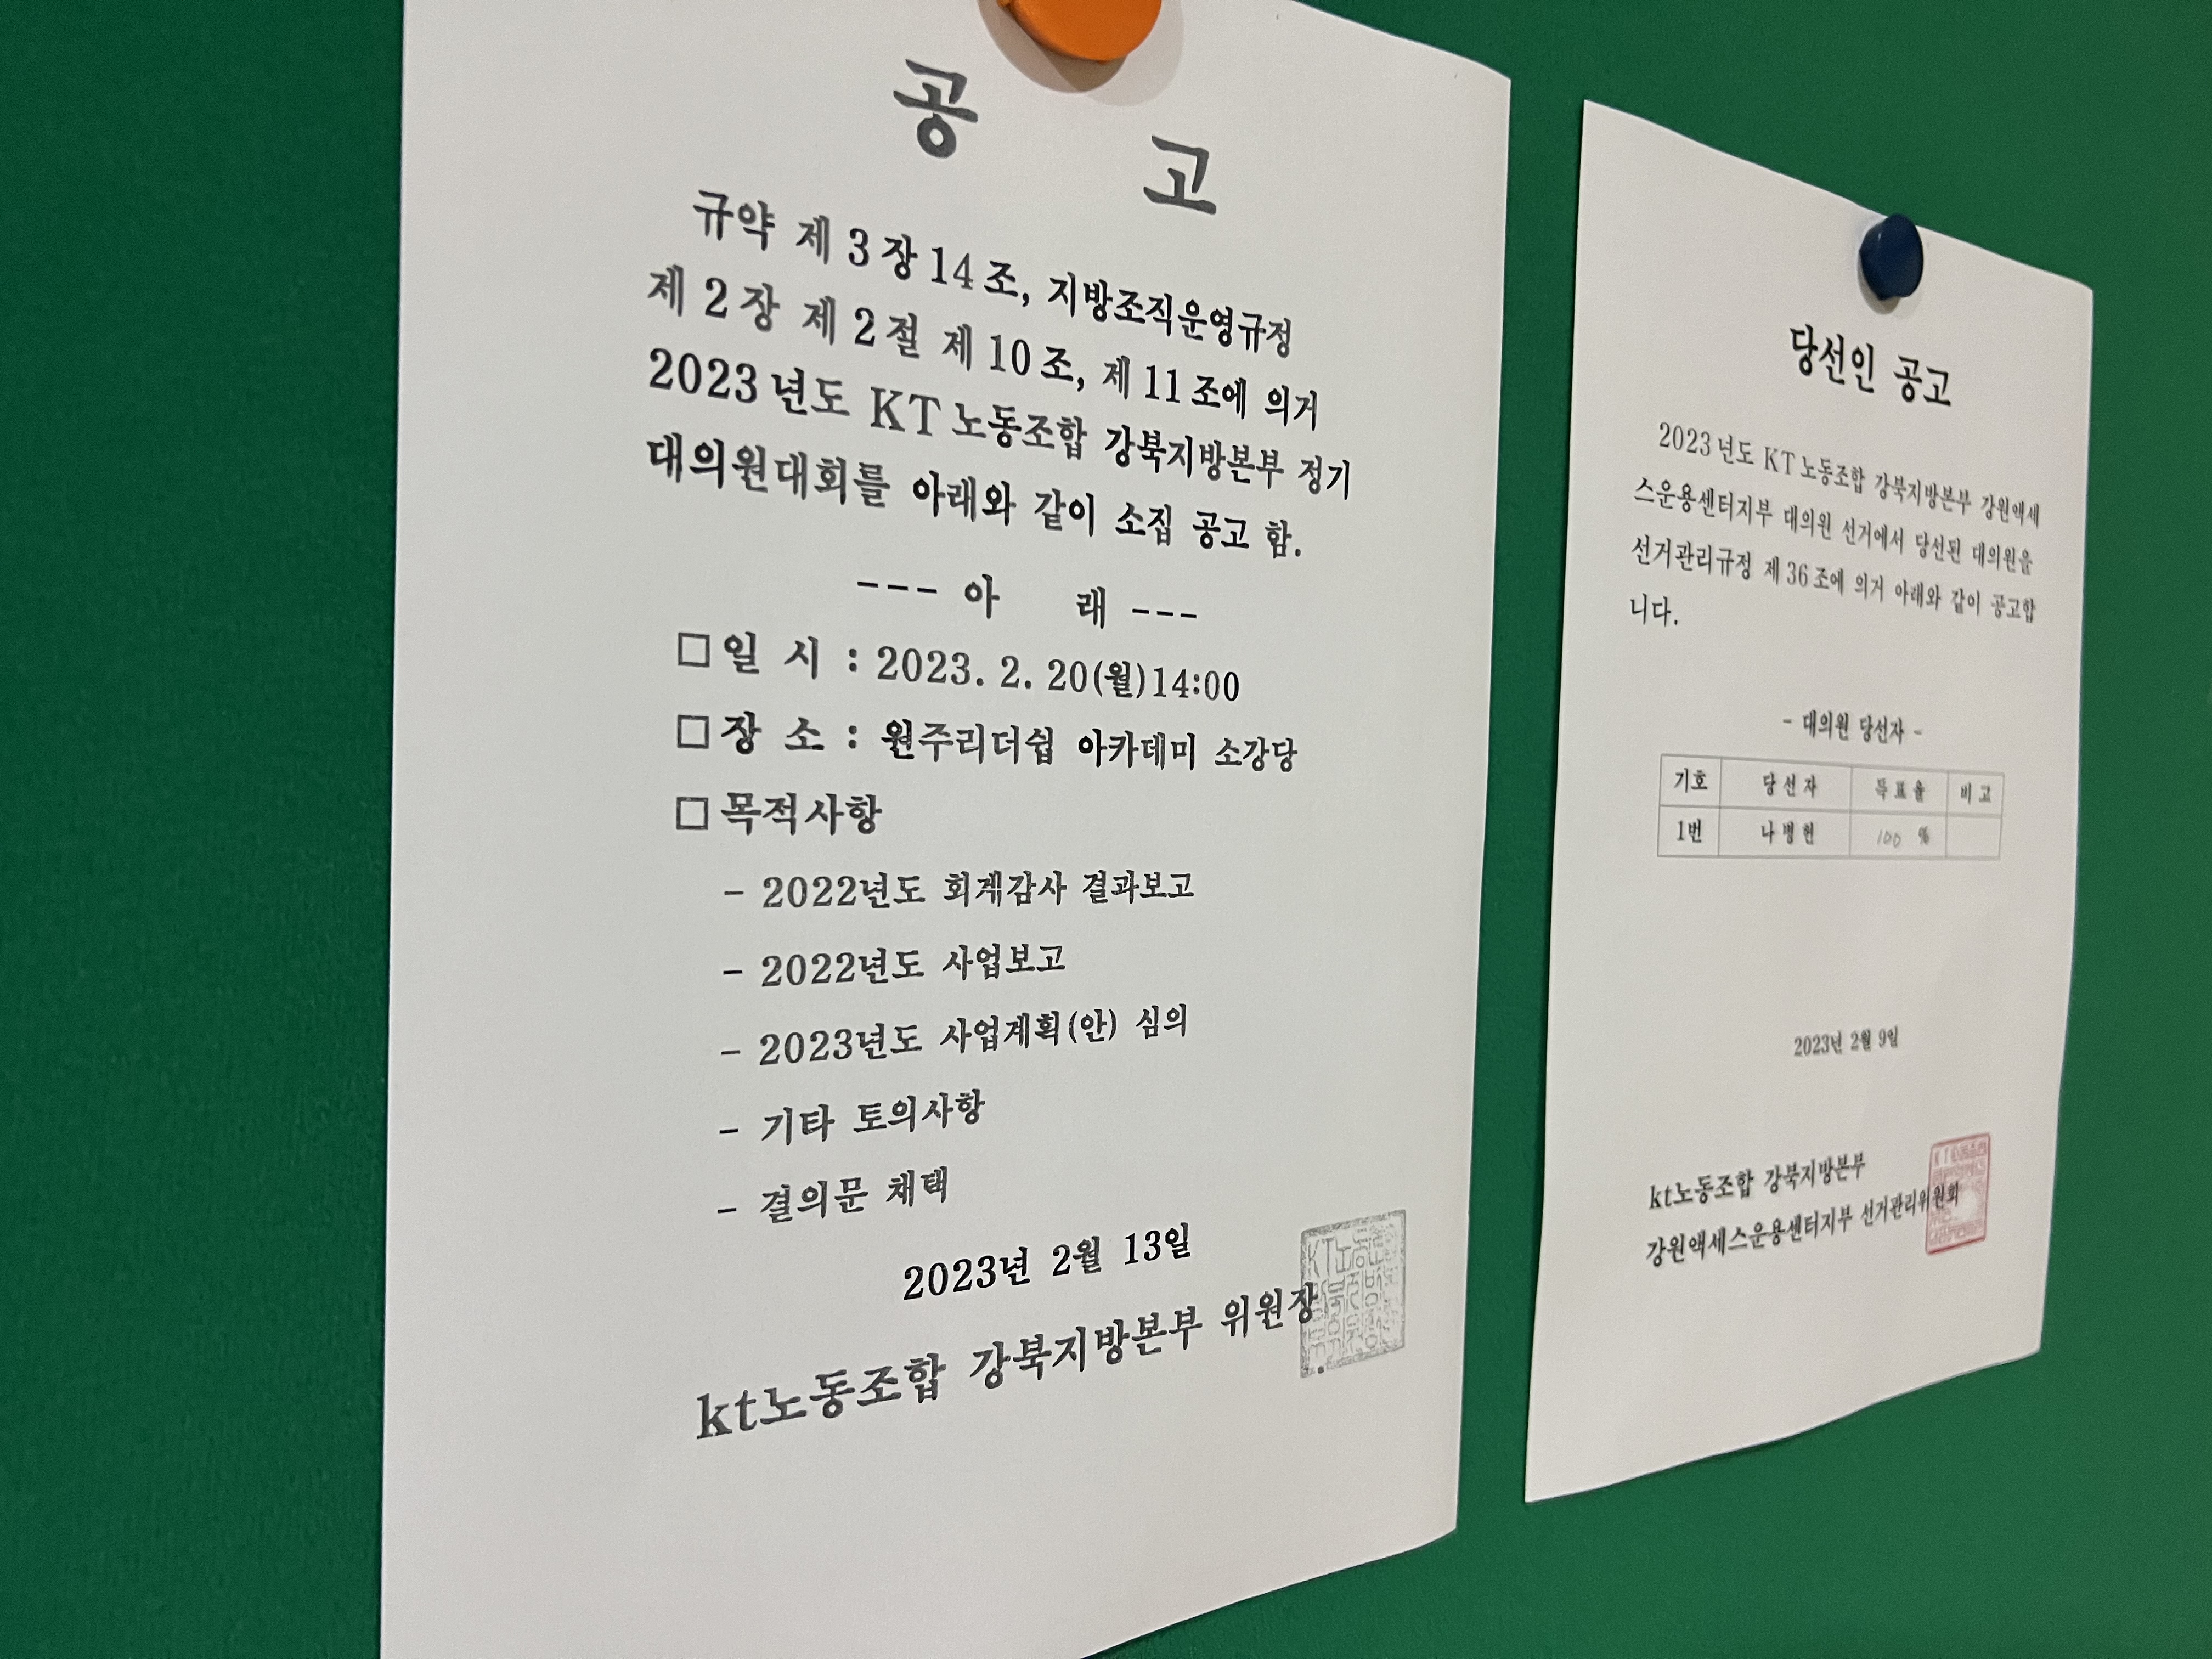 공 고
규약 제3장14조, 지방조직운영규정
제2장 제2절 제10조, 제11조에 의거
2023년도 KT노동조합 강북지방본부 정기
대의원대회를 아래와 같이 소집 공고 함.
--- 아 래 ---
□일 시 : 2023. 2. 20(월)14:00
□장 소 : 원주리더쉽 아카데미 소강당
□목적사항
- 2022년도 회계감사 결과보고
- 2022년도 사업보고
- 2023년도 사업계획(안) 심의
- 기타 토의사항
- 결의문 채택
2023년 2월 13일
kt노동조합 강북지방본부 위원장
당선인 공고
2023년도 KT노동조합 강북지방본부 강원액세
스운용센터지부 대의원 선거에서 당선된 대의원을
선거관리규정 제36조에 의거 아래와 같이 공고합
니다.
- 대의원 당선자 -
기호 당선자 득표율 비고
1번 나병헌 100 %
2023년 2월 9일
kt노동조합 강북지방본부
강원액세스운용센터지부 선거관리위원회